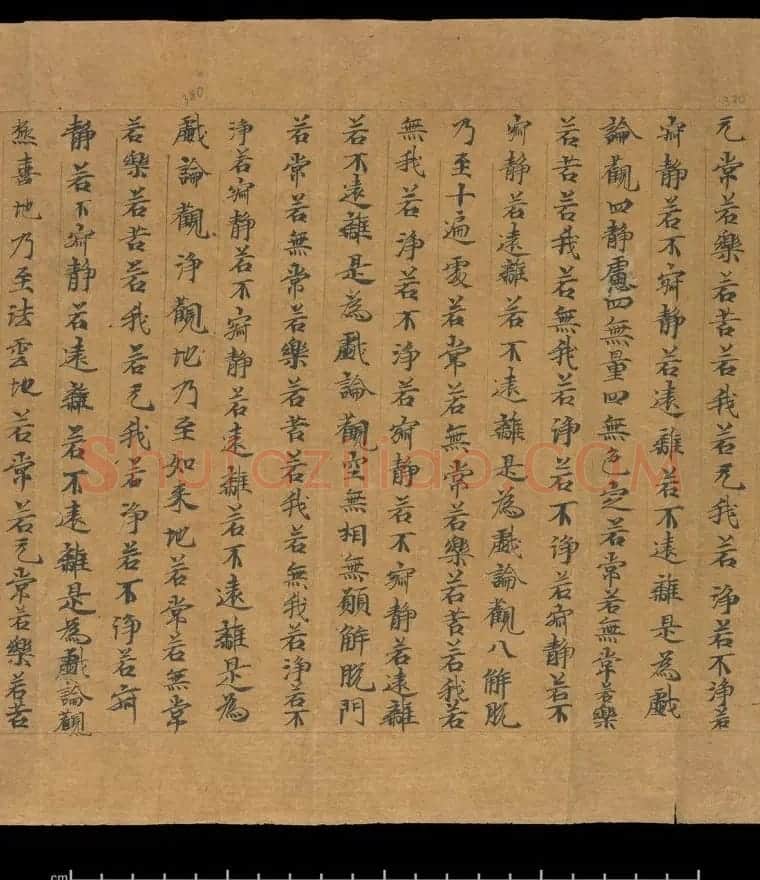 无常若樂若苦若我若无我若淨若不淨若
寂靜若不寂靜若遠離若不遠離是為戲
論觀四靜慮四無量四無色定若常若無常若樂
若苦若我若無我若淨若不淨若寂靜若不
寂靜若遠離若不遠離是為戲論觀八解脫
乃至十遍處若常若無常若樂若苦若我若
無我若淨若不淨若寂靜若不寂靜若遠離
若不遠離是為戲論觀空無相無願解脫門
若常若無常若樂若苦若我若無我若淨若不
淨若寂靜若不寂靜若遠離若不遠離是為
戲論觀淨觀地乃至如來地若常若無常
若樂若苦若我若无我若淨若不淨若寂
靜若不寂靜若遠離若不遠離是為戲論觀
極喜地乃至法雲地若常若无常若樂若苦
380
380
Shufaziliao.COM
cm